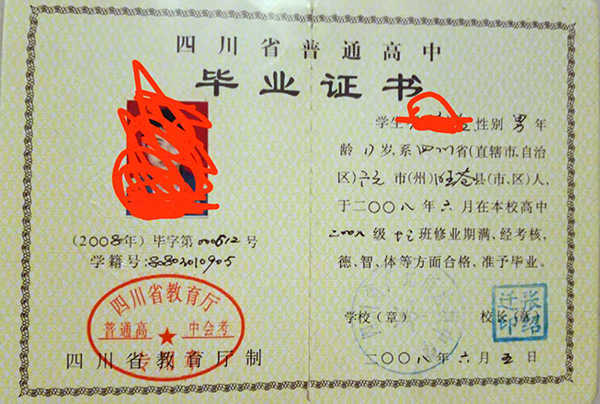 四川省普通高中
毕业证书
学生 性别 男 年
龄 17 岁,系 四川 省(直辖市、自治
区) 广元 市(州) 旺苍 县(市、区)人,
于二〇〇八年 六 月在本校高中
二〇〇八 级 班修业期满、经考核,
德、智、体等方面合格、准予毕业。
(2008年)毕字第000512号
学籍号:
学校(章) 校长(章)
二〇〇八年 六 月 五 日
四川省教育厅
普通高 中会考
专用章
四川省教育厅制
张绍
迁印